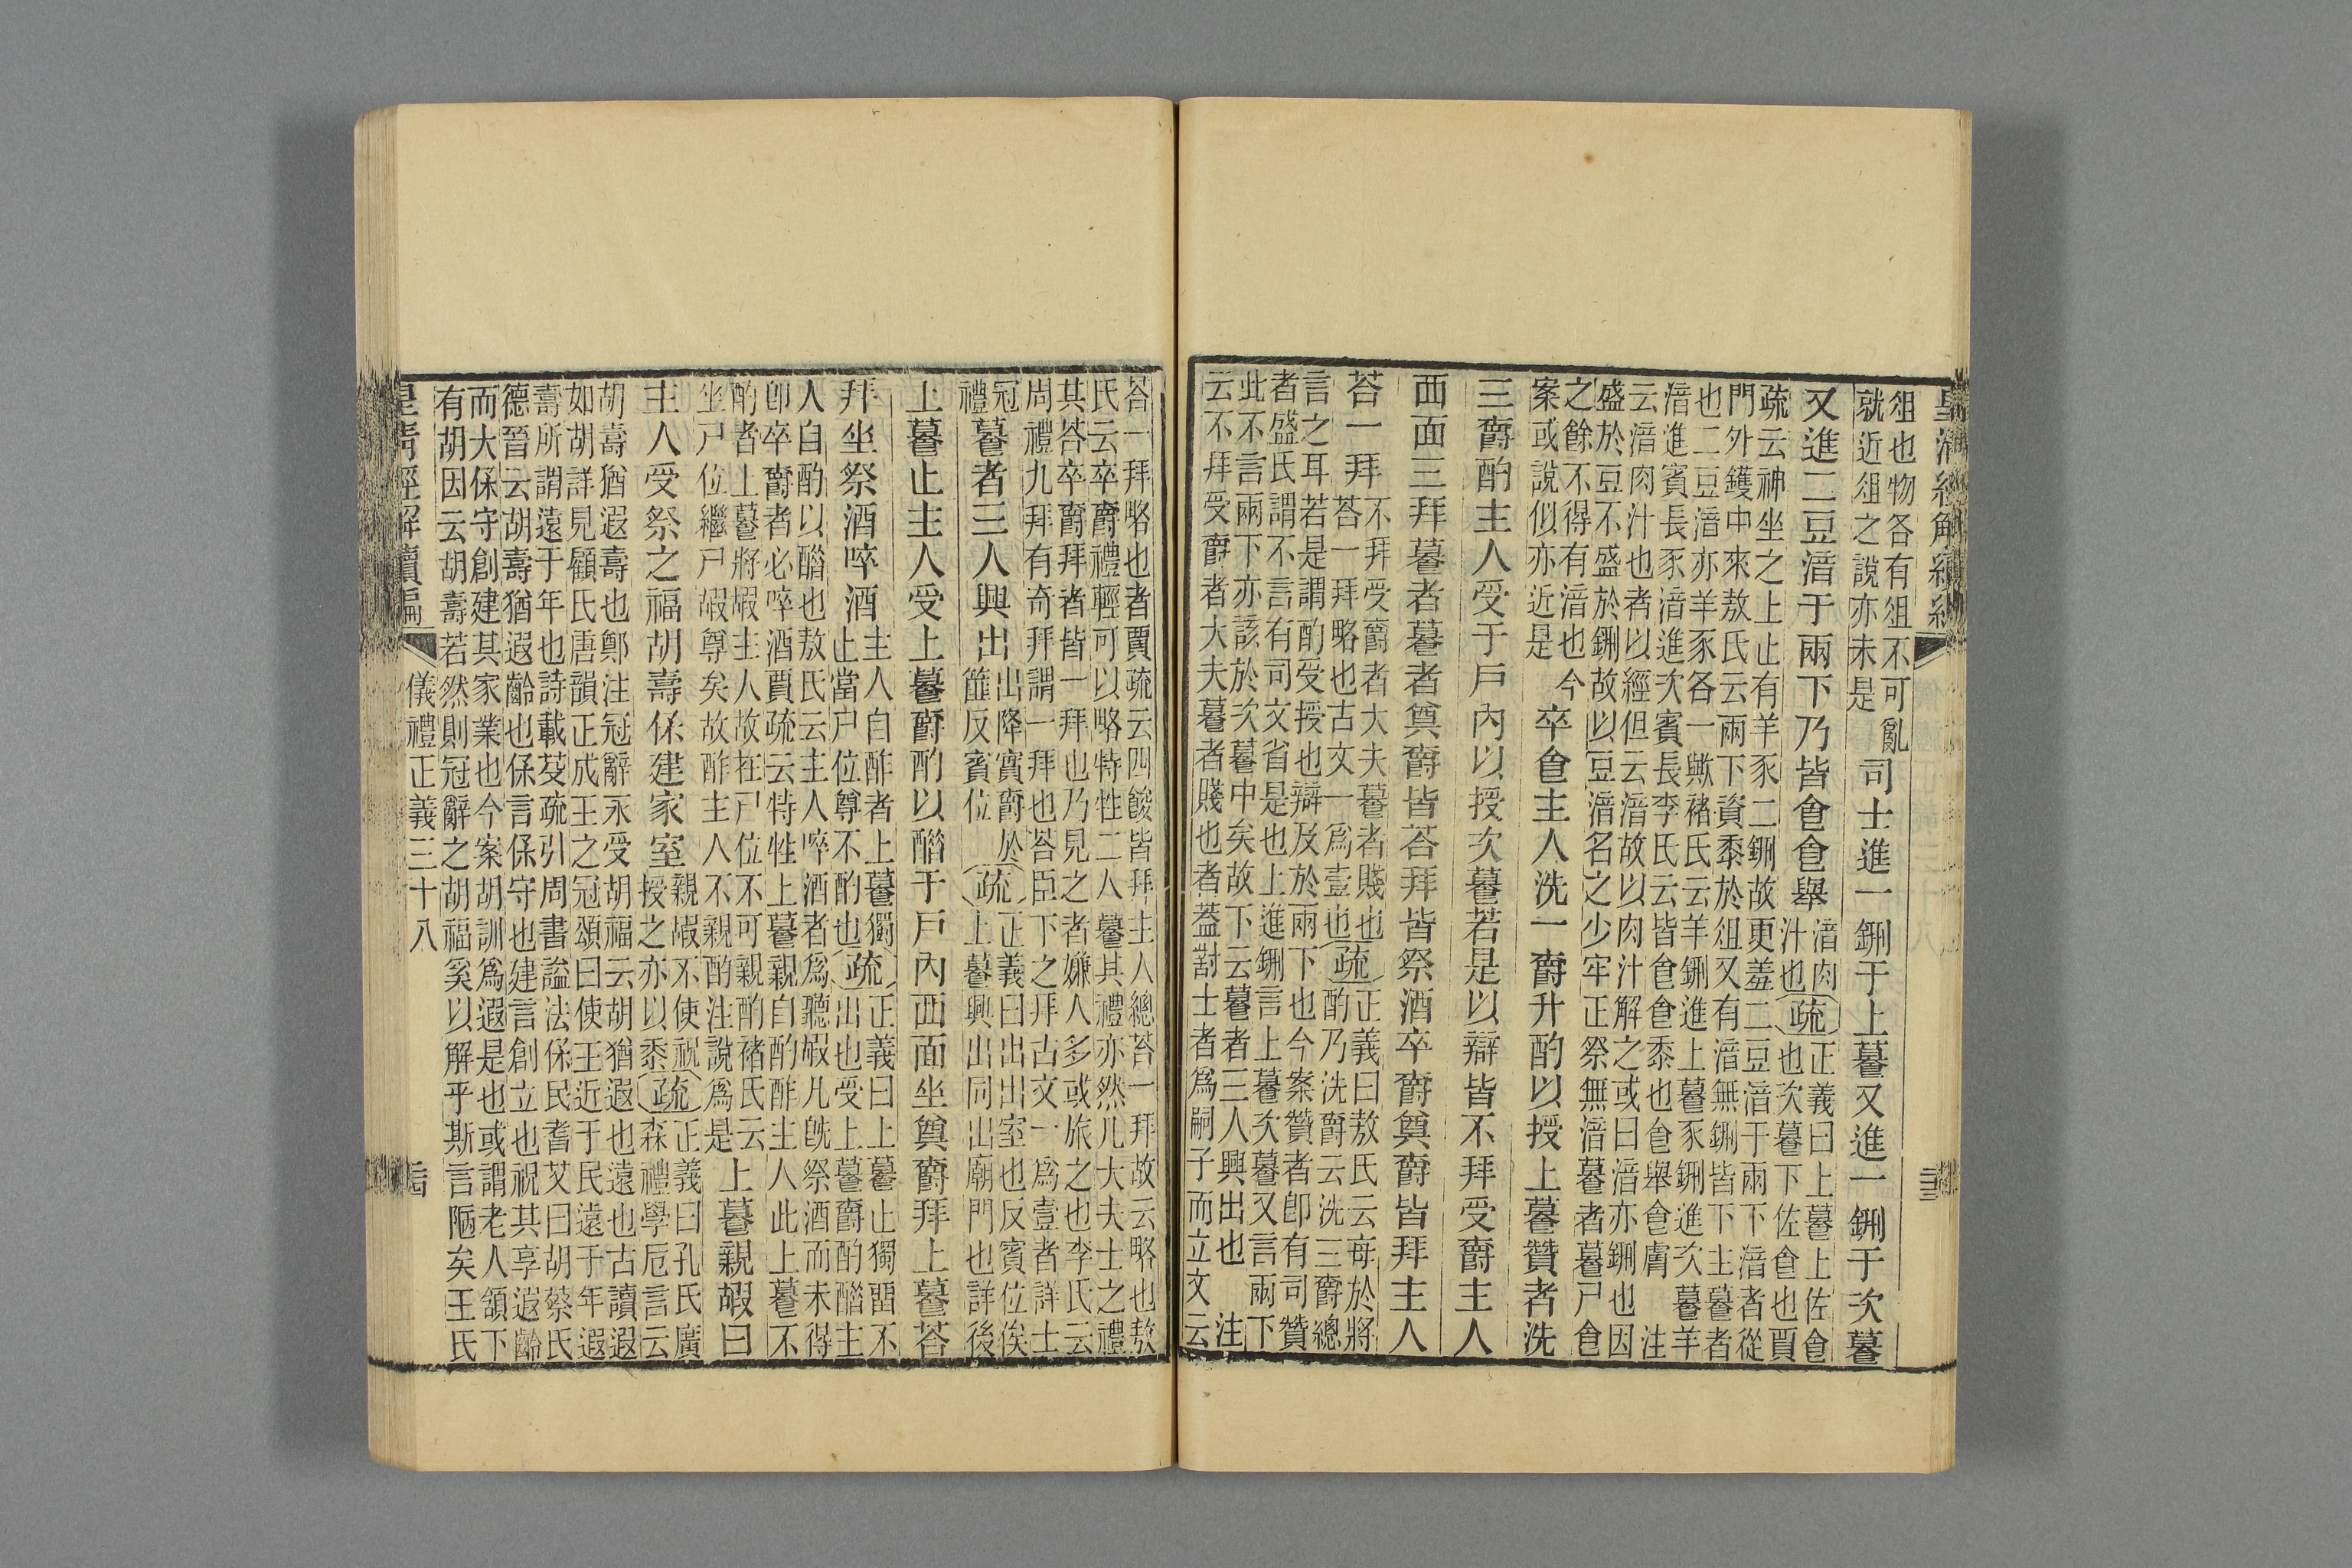 皇清經解續編
俎也物各有俎不可亂
就近俎之說亦未是
司士進一鉶于上䉵又進一鉶于次䉵
又進二豆湆于兩下乃皆食食舉
湆肉
汁也
疏
正義曰上䉵上佐食
也次䉵下佐食也賈
疏云神坐之上止有羊豕二鉶故更羞二豆湆于兩下湆者從
門外鑊中來敖氏云兩下資黍於俎又有湆無鉶皆下主䉵者
也二豆湆亦羊豕各一歟褚氏云羊鉶進上䉵豕鉶進次䉵羊
湆進賓長豕湆進次賓長李氏云皆食食黍也食舉食膚 注
云湆肉汁也者以經但云湆故以肉汁解之或曰湆亦鉶也因
盛於豆不盛於鉶故以豆湆名之少牢正祭無湆䉵者䉵尸食
之餘不得有湆也今
案或說似亦近是
卒食主人洗一爵升酌以授上䉵贊者洗
三爵酌主人受于戶內以授次䉵若是以辯皆不拜受爵主人
西面三拜䉵者䉵者奠爵皆荅拜皆祭酒卒爵奠爵皆拜主人
荅一拜
不拜受爵者大夫䉵者賤也
荅一拜略也古文一爲壹也
疏
正義曰敖氏云每於將
酌乃洗爵云洗三爵總
言之耳若是謂酌受授也辯及於兩下也今案贊者卽有司贊
者盛氏謂不言有司文省是也上進鉶言上䉵次䉵又言兩下
此不言兩下亦該於次䉵中矣故下云䉵者三人興出也 注
云不拜受爵者大夫䉵者賤也者蓋對士者爲嗣子而立文云
荅一拜略也者賈疏云四餕皆拜主人總荅一拜故云略也敖
氏云卒爵禮輕可以略特牲二人䉵其禮亦然凡大夫士之禮
其荅卒爵拜者皆一拜也乃見之者嫌人多或旅之也李氏云
周禮九拜有奇拜謂一拜也荅臣下之拜古文一爲壹者詳士
冠
禮
䉵者三人興出
出降實爵於
篚反賓位
疏
正義曰出出室也反賓位俟
上䉵興出同出廟門也詳後
上䉵止主人受上䉵爵酌以酳于戶內西面坐奠爵拜上䉵荅
拜坐祭酒啐酒
主人自酢者上䉵獨
止當尸位尊不酌也
疏
正義曰上䉵止獨畱不
出也受上䉵爵酌酳主
人自酌以酳也敖氏云主人啐酒者爲聽嘏凡旣祭酒而未得
卽卒爵者必啐酒賈疏云特牲上䉵親自酌酢主人此上䉵不
酌者上䉵將嘏主人故在尸位不可親酌褚氏云
坐尸位繼尸嘏尊矣故酢主人不親酌注說爲是
上䉵親嘏曰
主人受祭之福胡壽保建家室
親嘏不使祝
授之亦以黍
疏
正義曰孔氏廣
森禮學卮言云
胡壽猶遐壽也鄭注冠辭永受胡福云胡猶遐也遠也古讀遐
如胡詳見顧氏唐韻正成王之冠頌曰使王近于民遠于年遐
壽所謂遠于年也詩載芟疏引周書謚法保民耆艾曰胡蔡氏
德晉云胡壽猶遐齡也保言保守也建言創立也祝其享遐齡
而大保守創建其家業也今案胡訓爲遐是也或謂老人頷下
有胡因云胡壽若然則冠辭之胡福奚以解乎斯言陋矣王氏
皇清經解續編
儀禮正義三十八